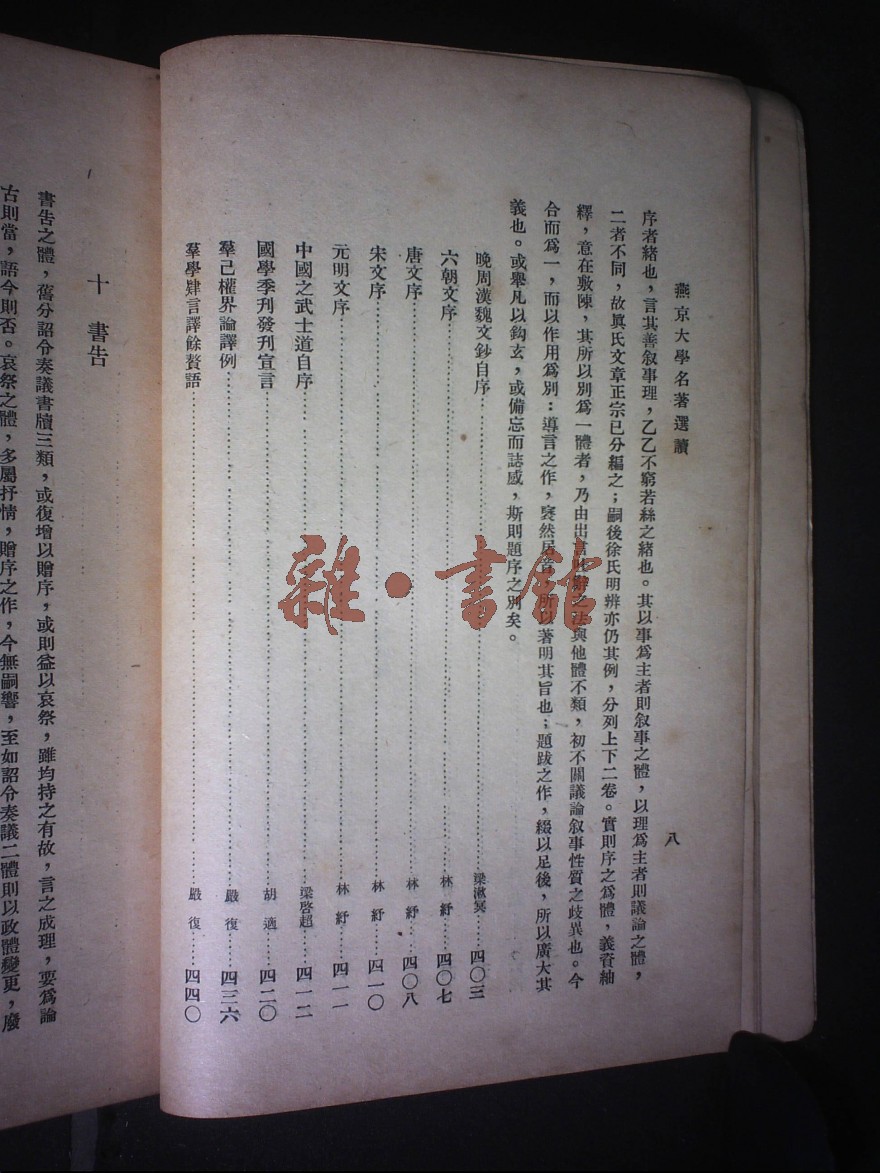 燕京大學名著選讀
八
序者緒也，言其善叙事理，乙乙不窮若絲之緒也。其以事爲主者則叙事之體，以理爲主者則議論之體，
二者不同，故眞氏文章正宗已分編之；嗣後徐氏明辨亦仍其例，分列上下二卷。實則序之爲體，義資紬
釋，意在敷陳，其所以別爲一體者，乃由出言之法與他體不類，初不關議論叙事性質之歧異也。今
合而爲一，而以作用爲別：導言之作，裒然居首，所以著明其旨也；題跋之作，綴以足後，所以廣大其
義也。或舉凡以鈎玄，或備忘而誌感，斯則題序之別矣。
晚周漢魏文鈔自序……梁漱冥……四〇三
六朝文序……林紓……四〇七
唐文序……林紓……四〇八
宋文序……林紓……四一〇
元明文序……林紓……四一一
中國之武士道自序……梁啓超……四一二
國學季刊發刊宣言……胡適……四二〇
羣己權界論譯例……嚴復……四三六
羣學肄言譯餘贅語……嚴復……四四〇
十 書告
書告之體，舊分詔令奏議書牘三類，或復增以贈序，或則益以哀祭，雖均持之有故，言之成理，要爲論
古則當，語今則否。哀祭之體，多屬抒情，贈序之作，今無嗣響，至如詔令奏議二體則以政體變更，廢
雜·書館